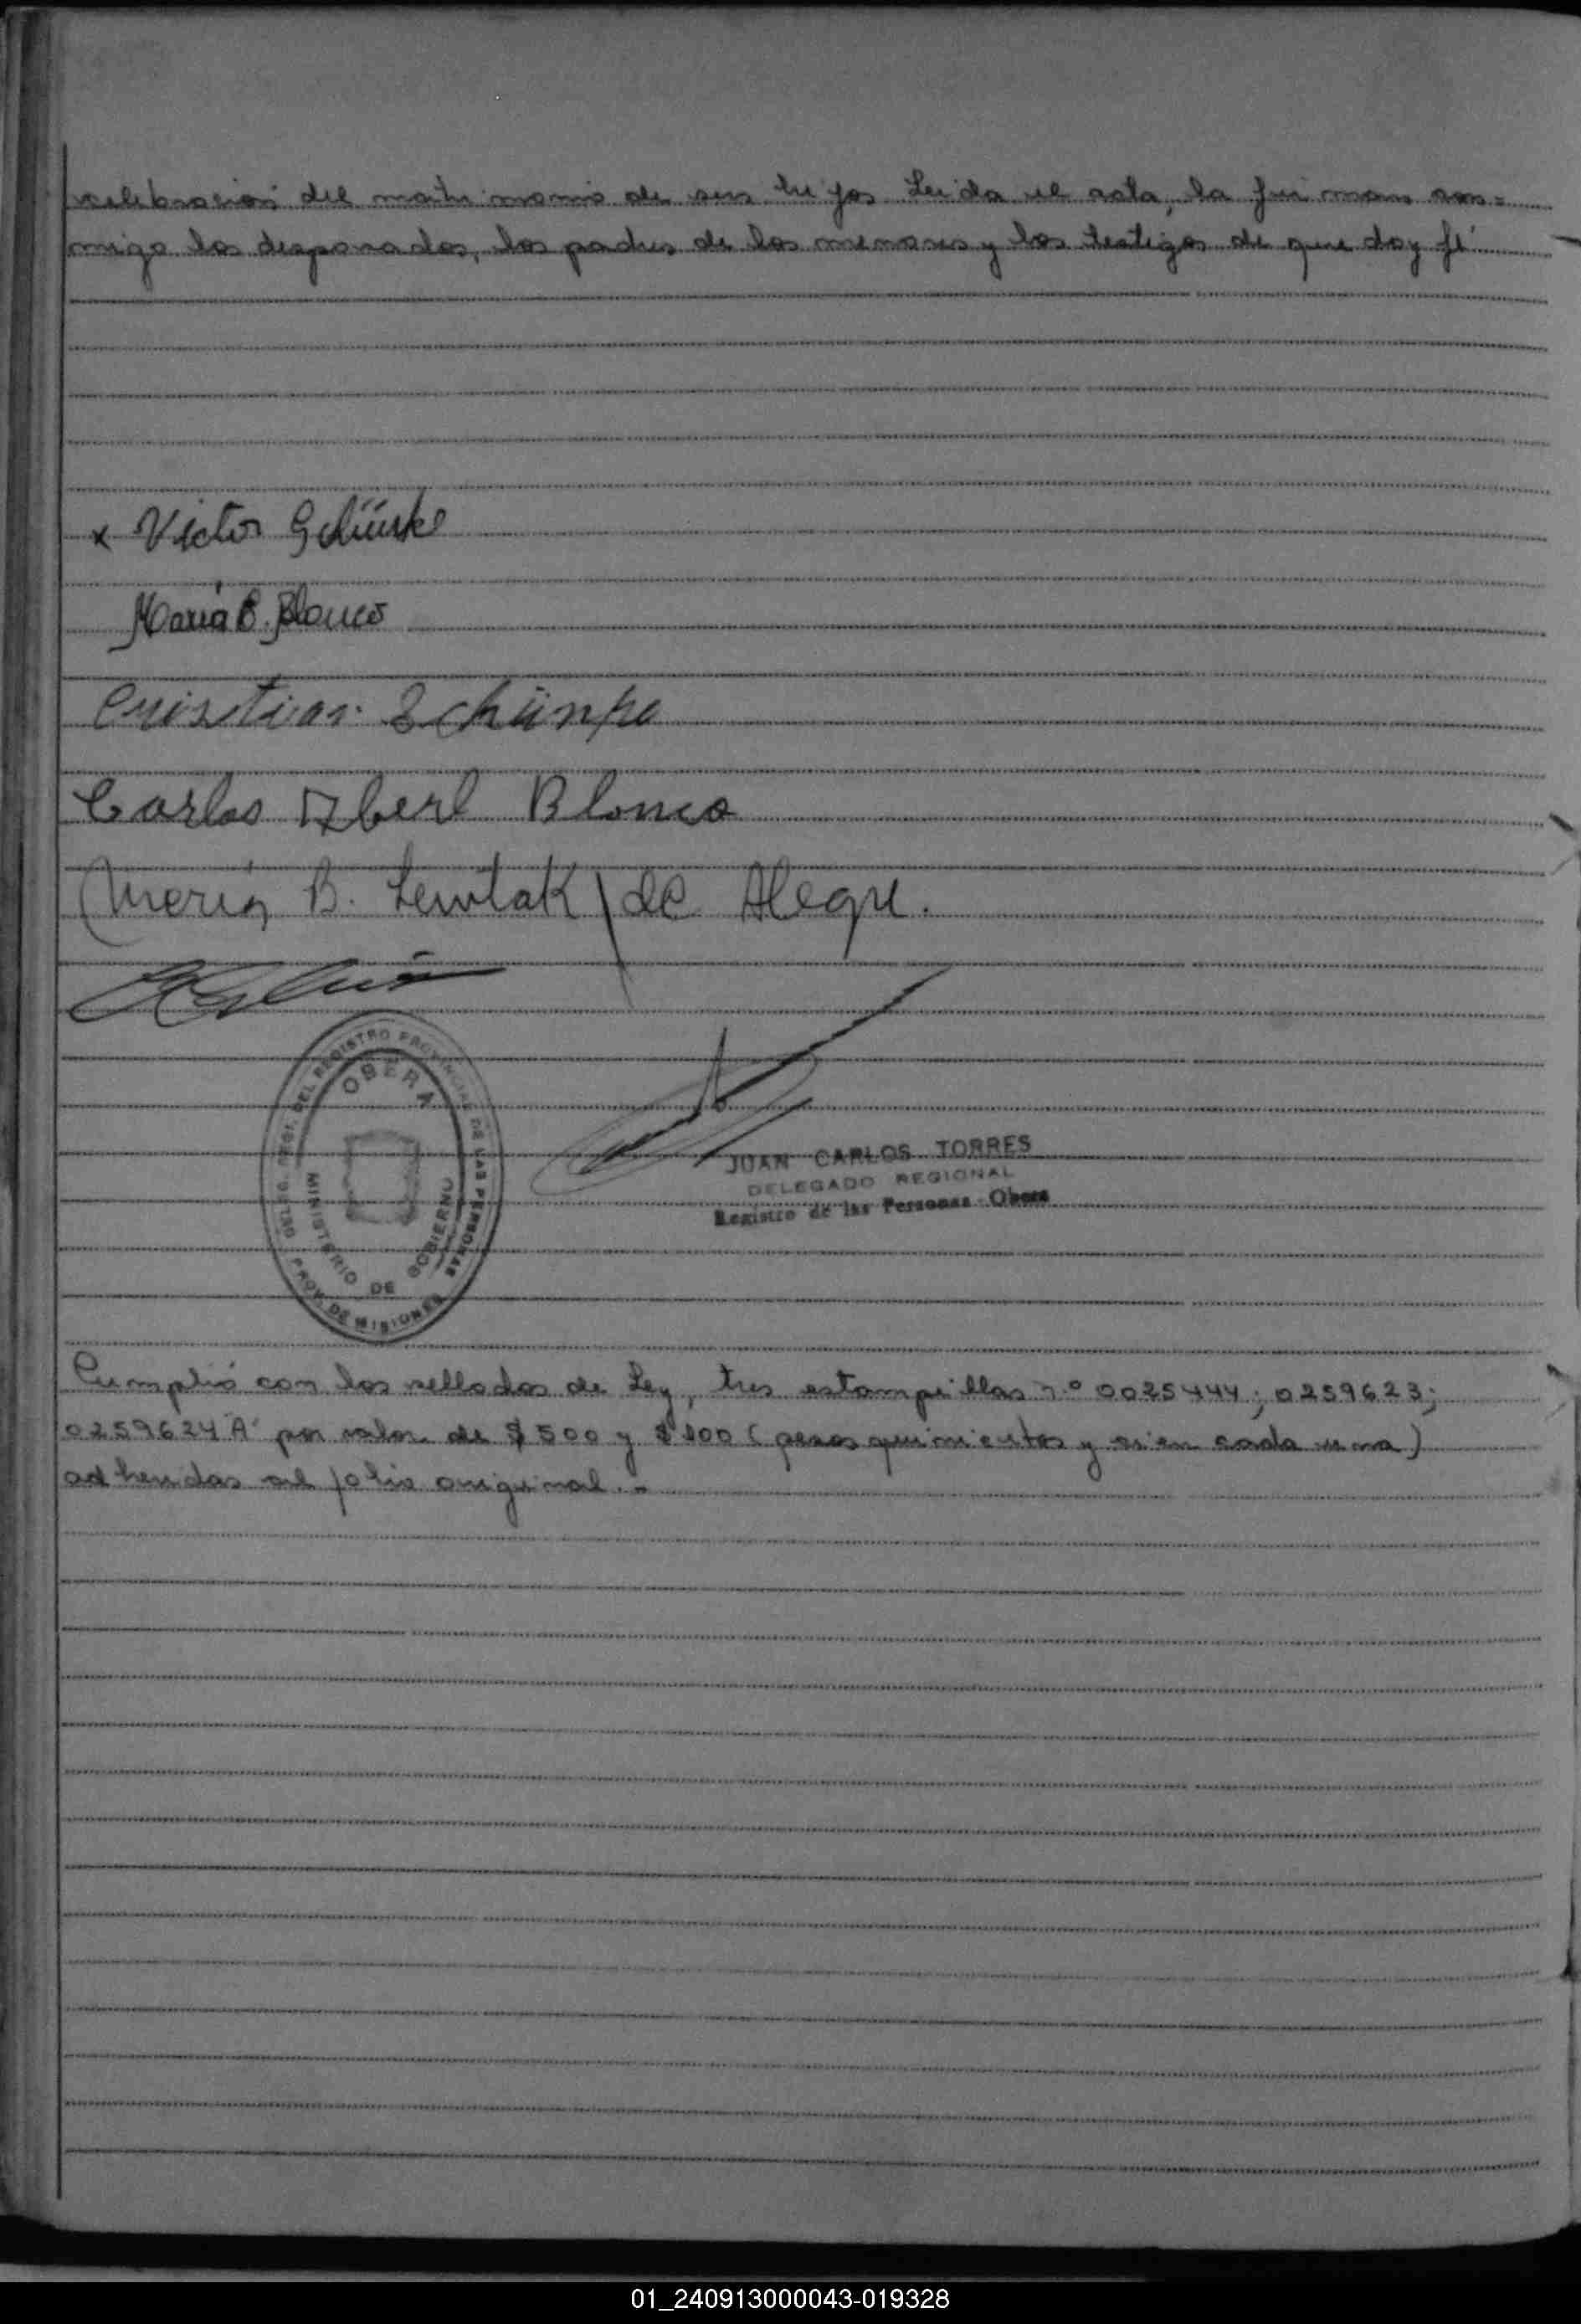 celebración del matrimonio de sus hijos Leida el acta, la firman con=
migo los desposados, los padres de los menores y los testigos de que doy fé
x Victor Schünke
María E. Blanco
Cristian Schünke
Carlos Albert Blanco
María B. de Alegre.
DELEG. DEL REGISTRO PROVINCIAL DE LAS PERSONAS
OBERA
MINISTERIO DE GOBIERNO
PROV. DE MISIONES
JUAN CARLOS TORRES
DELEGADO REGIONAL
Registro de las Personas - Obera
Cumplió con los sellados de Ley, tres estampillas n.º 0025444; 0259623;
0259624 "A" por valor de $ 500 y $ 100 (pesos quinientos y cien cada una)
adheridas al folio original. -
01_240913000043-019328